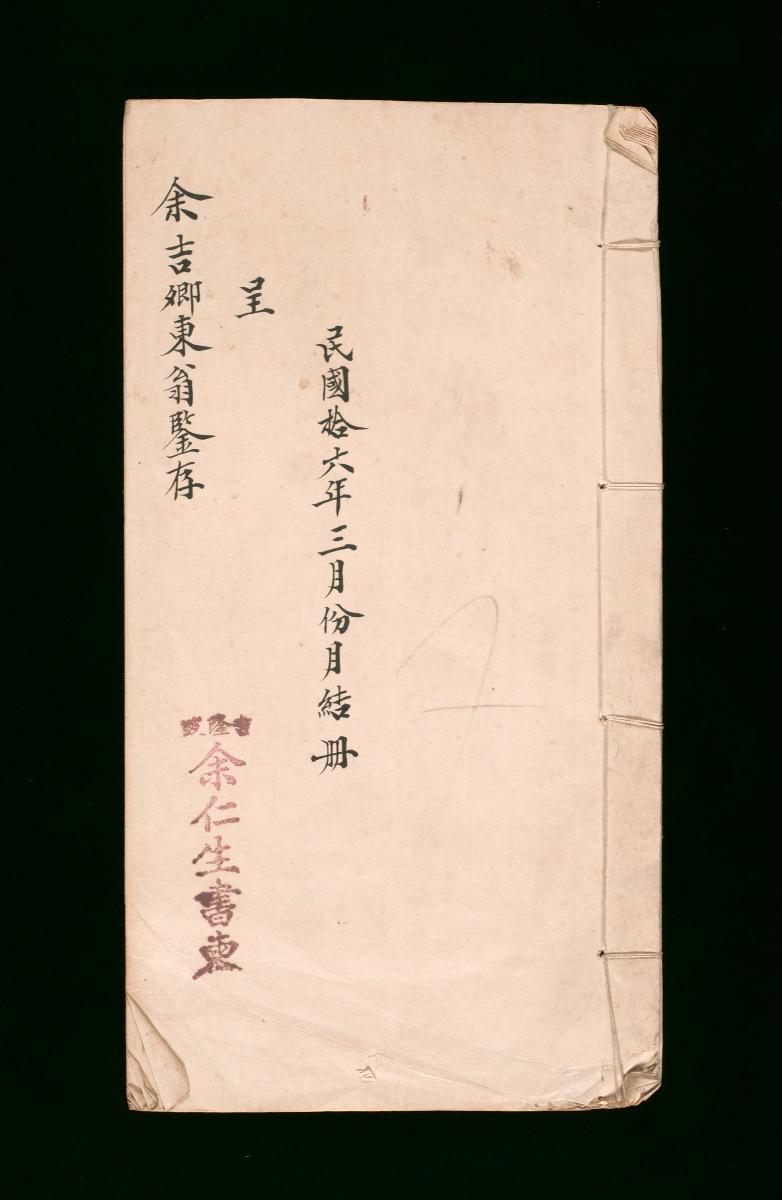 民國拾六年三月份月結冊
呈
余吉卿東翁鑒存
吉隆坡
余仁生書柬